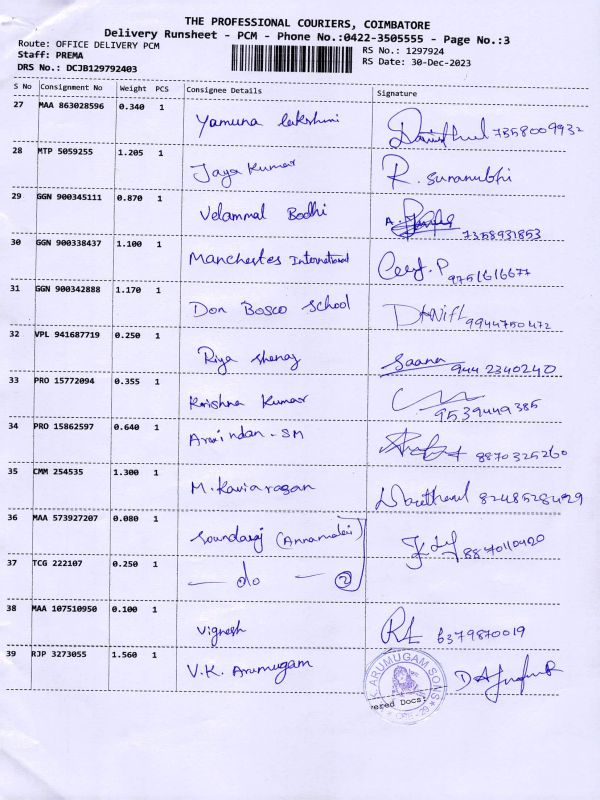 THE PROFESSIONAL COURIERS, COIMBATORE
Delivery Runsheet - PCM - Phone No.:0422-3505555 - Page No.:3
Route: OFFICE DELIVERY PCM RS No.: 1297924
Staff: PREMA RS Date: 30-Dec-2023
DRS No.: DCJB129792403
S No Consignment No Weight PCS Consignee Details Signature
27 MAA 863028596 0.340 1 Yamuna Lakshmi 7358009932
28 MTP 5059255 1.205 1 Jaya Kumar R.
29 GGN 900345111 0.870 1 Velammal Bodhi A. 7358931853
30 GGN 900338437 1.100 1 Manchestes International P 9751616677
31 GGN 900342888 1.170 1 Don Bosco School 9944750472
32 VPL 941687719 0.250 1 Riya Shenoy Saana 9442340240
33 PRO 15772094 0.355 1 Krishna Kumar 9539449385
34 PRO 15862597 0.640 1 Aravindan. SM 8870325260
35 CMM 254535 1.300 1 M. 8248528429
36 MAA 573927207 0.080 1 Soundaraj (Annamalai) 8870110420
37 TCG 222107 0.250 1 — do — 2
38 MAA 107510950 0.100 1 Vignesh 6379870019
39 RJP 3273055 1.560 1 V.K. Arumugam
K. ARUMUGAM SONS
CBE - 29
ered Docs: